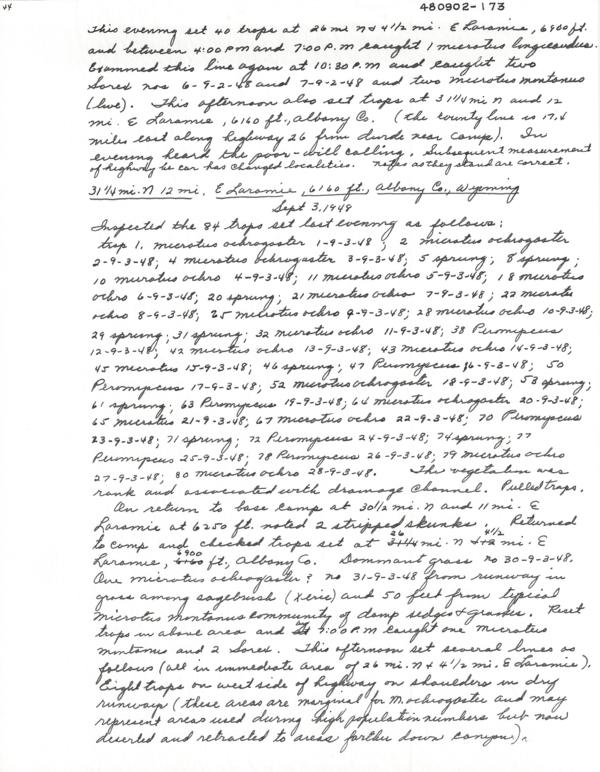 44
480902-173
This evening set 40 traps at 26 mi N & 4 1/2 mi. E Laramie, 6900 ft.
and between 4:00 PM and 7:00 P.M caught 1 microtus longicaudus.
Examined this line again at 10:30 P.M and caught two
Sorex nos 6-9-2-48 and 7-9-2-48 and two microtus montanus
(live). This afternoon also set traps at 31 1/4 mi N and 12
mi. E Laramie, 6160 ft., Albany Co. (the county line is 17.4
miles east along highway 26 from divide near camp). In
evening heard the poor-will calling. Subsequent measurement
of highway by car has changed localities. Notes as they stand are correct.
31 1/4 mi. N 12 mi. E Laramie, 6160 ft., Albany Co., Wyoming
Sept 3, 1948
Inspected the 84 traps set last evening as follows:
trap 1. microtus ochrogaster 1-9-3-48; 2 microtus ochrogaster
2-9-3-48; 4 microtus ochrogaster 3-9-3-48; 5 sprung; 8 sprung;
10 microtus ochro 4-9-3-48; 11 microtus ochro 5-9-3-48; 18 microtus
ochro 6-9-3-48; 20 sprung; 21 microtus ochro 7-9-3-48; 22 microtus
ochro 8-9-3-48; 25 microtus ochro 9-9-3-48; 28 microtus ochro 10-9-3-48;
29 sprung; 31 sprung; 32 microtus ochro 11-9-3-48; 38 Peromyscus
12-9-3-48; 42 microtus ochro 13-9-3-48; 43 microtus ochro 14-9-3-48;
45 microtus 15-9-3-48; 46 sprung; 47 Peromyscus 16-9-3-48; 50
Peromyscus 17-9-3-48; 52 microtus ochrogaster 18-9-3-48; 53 sprung;
61 sprung; 63 Peromyscus 19-9-3-48; 64 microtus ochrogaster 20-9-3-48;
65 microtus 21-9-3-48; 67 microtus ochro 22-9-3-48; 70 Peromyscus
23-9-3-48; 71 sprung; 72 Peromyscus 24-9-3-48; 74 sprung; 77
Peromyscus 25-9-3-48; 78 Peromyscus 26-9-3-48; 79 microtus ochro
27-9-3-48; 80 microtus ochro 28-9-3-48. The vegetation was
rank and associated with drainage channel. Pulled traps.
On return to base camp at 30 1/2 mi. N and 11 mi. E
Laramie at 6250 ft. noted 2 stripped skunks. Returned
to camp and checked traps set at 26 mi. N & 4 1/2 mi. E
Laramie, 6900 ft., Albany Co. Dominant grass no 30-9-3-48.
One microtus ochrogaster? no 31-9-3-48 from runway in
grass among sagebrush (xeric) and 50 feet from typical
microtus montanus community of damp sedges & grasses. Reset
traps in above area and at 7:00 P.M caught one microtus
montanus and 2 Sorex. This afternoon set several lines as
follows (all in immediate area of 26 mi. N & 4 1/2 mi. E Laramie).
Eight traps on west side of highway on shoulders in dry
runways (these areas are marginal for M. ochrogaster and may
represent areas used during high population numbers but now
deserted and retracted to areas farther down canyon).